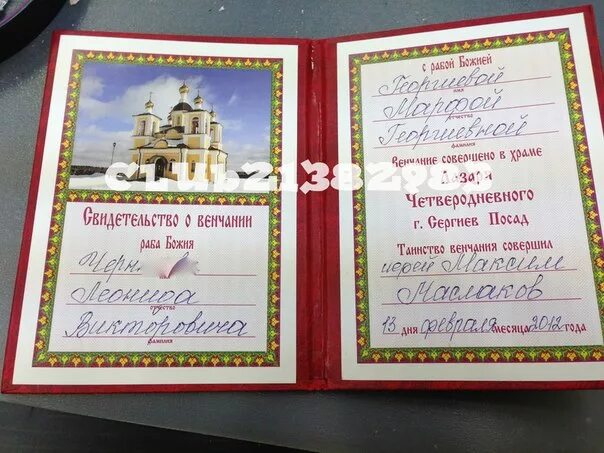 Свидетельство о венчании
раба Божия
Леонида
отчество
Викторовича
фамилия
с рабой Божией
Георгиевой
имя
Марфой
отчество
Георгиевной
фамилия
Венчание совершено в храме
Лазаря
Четверодневного
г. Сергиев Посад
Таинство венчания совершил
иерей Максим
Маслаков
13 дня февраля месяца 2012 года